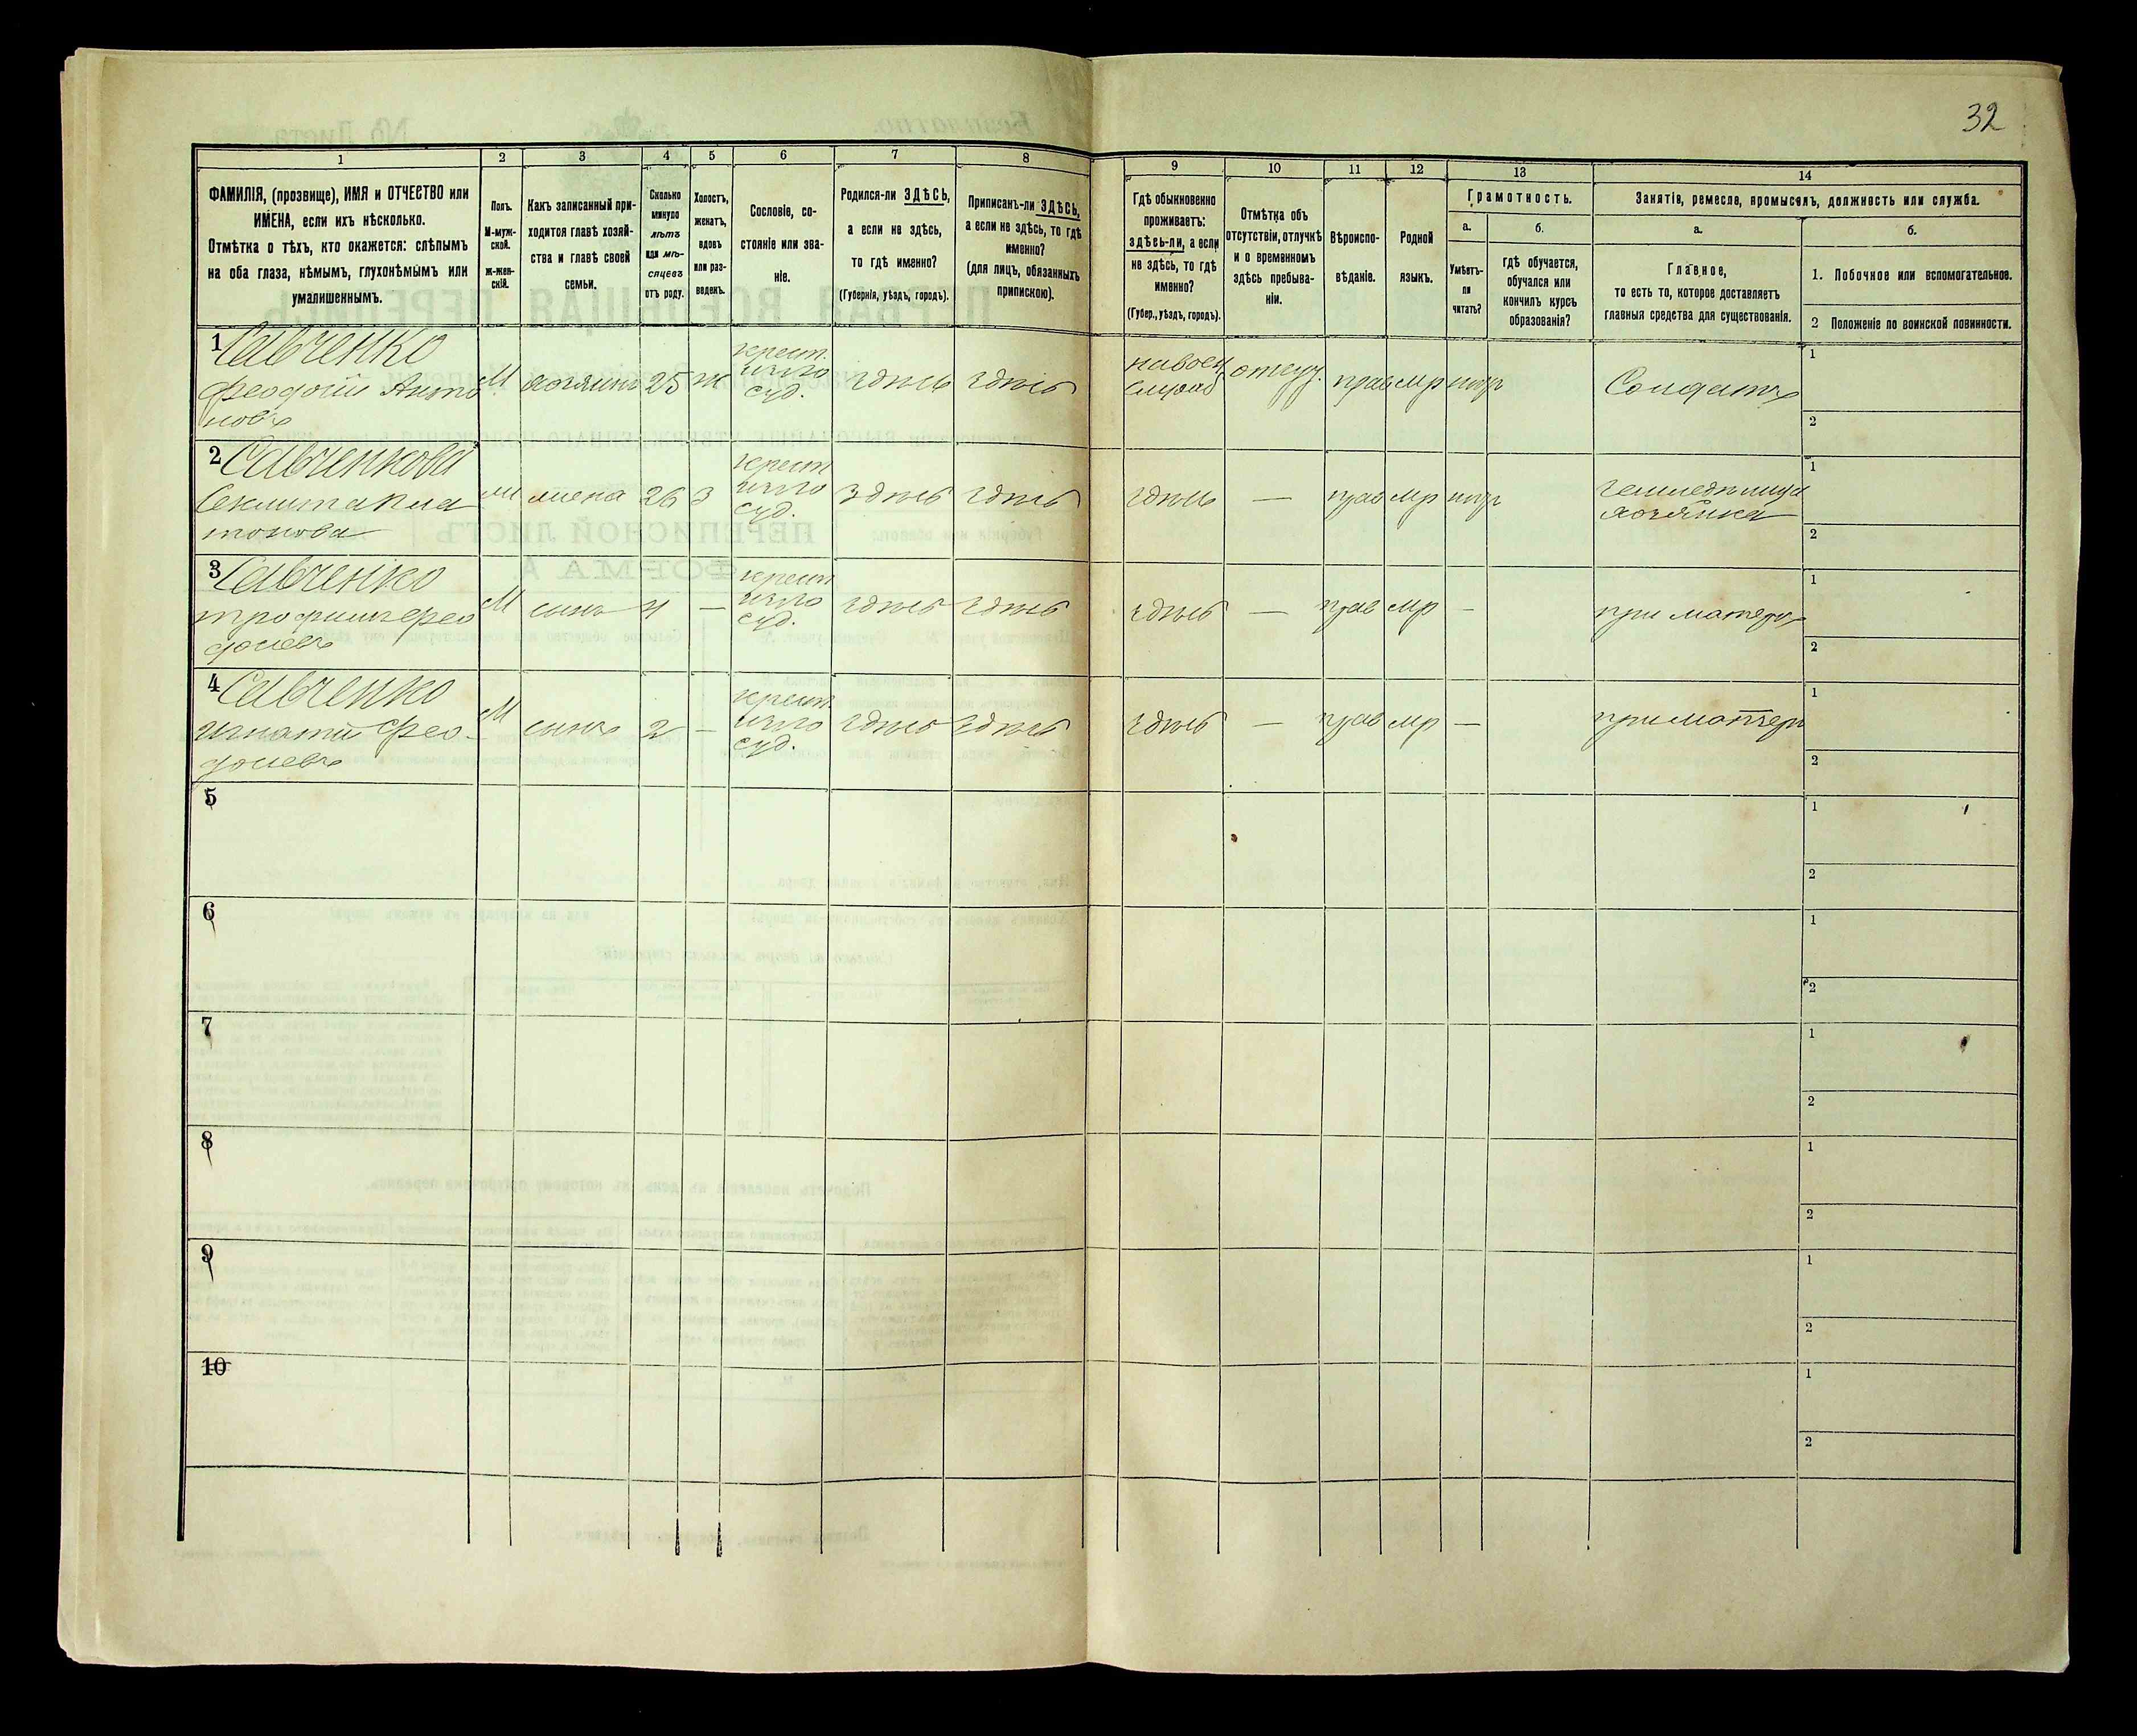 32
1
2
3
4
5
6
7
8
9
10
11
12
13
14
ФАМИЛІЯ, (прозвище), ИМЯ и ОТЧЕСТВО или
ИМЕНА, если ихъ нѣсколько.
Отмѣтка о тѣхъ, кто окажется: слѣпымъ
на оба глаза, нѣмымъ, глухонѣмымъ или
умалишеннымъ.
Полъ.
М-муж-
ской.
ж-жен-
скій.
Какъ записанный при-
ходится главѣ хозяй-
ства и главѣ своей
семьи.
Сколько
минуло
лѣтъ
или мѣ-
сяцевъ
отъ роду.
Холостъ,
женатъ,
вдовъ
или раз-
веденъ.
Сословіе, со-
стояніе или зва-
ніе.
Родился-ли ЗДѢСЬ,
а если не здѣсь,
то гдѣ именно?
(Губернія, уѣздъ, городъ).
Приписанъ-ли ЗДѢСЬ,
а если не здѣсь, то гдѣ
именно?
(для лицъ, обязанныхъ
припискою).
Гдѣ обыкновенно
проживаетъ:
здѣсь-ли, а если
не здѣсь, то гдѣ
именно?
(Губер., уѣздъ, городъ).
Отмѣтка объ
отсутствіи, отлучкѣ
и о временномъ
здѣсь пребыва-
ніи.
Вѣроиспо-
вѣданіе.
Родной
языкъ.
Грамотность.
а.
Умѣетъ-
ли
читать?
б.
гдѣ обучается,
обучался или
кончилъ курсъ
образованія?
Занятія, ремесло, промыселъ, должность или служба.
а.
Главное,
то есть то, которое доставляетъ
главныя средства для существованія.
б.
1. Побочное или вспомогательное.
2 Положеніе по воинской повинности.
1 Савченко
Феодосій Анто
новъ
М
хозяинъ
25
ж
крест.
изъго
суд.
здѣсь
здѣсь
отсут.
прав
мр
нѣтъ
Солдатъ
1
2
2 Савченкова
м
жена
26
З
крест
изъго
суд.
здѣсь
здѣсь
здѣсь
—
прав
мр
нѣтъ
хозяйка
1
2
3 Савченко
трофимъ фео
досіевъ
М
сынъ
4
—
крест
изъго
суд.
здѣсь
здѣсь
здѣсь
—
прав
мр
—
при матери
1
2
4 Савченко
игнатій Фео-
досіевъ
М
сынъ
2
—
крест.
изъго
суд.
здѣсь
здѣсь
здѣсь
—
прав
мр
—
при матери
1
2
5
1
2
6
1
2
7
1
2
8
1
2
9
1
2
10
1
2